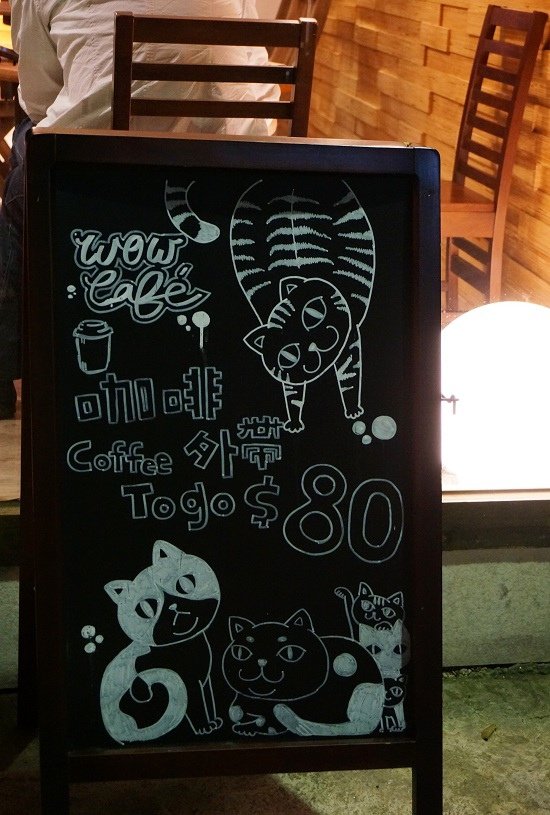 wow
café
咖啡
Coffee 外帶
Togo $80